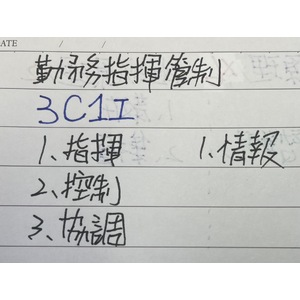 ATE / /
勤務指揮管制
3C1I
1、指揮 1、情報
2、控制
3、協調